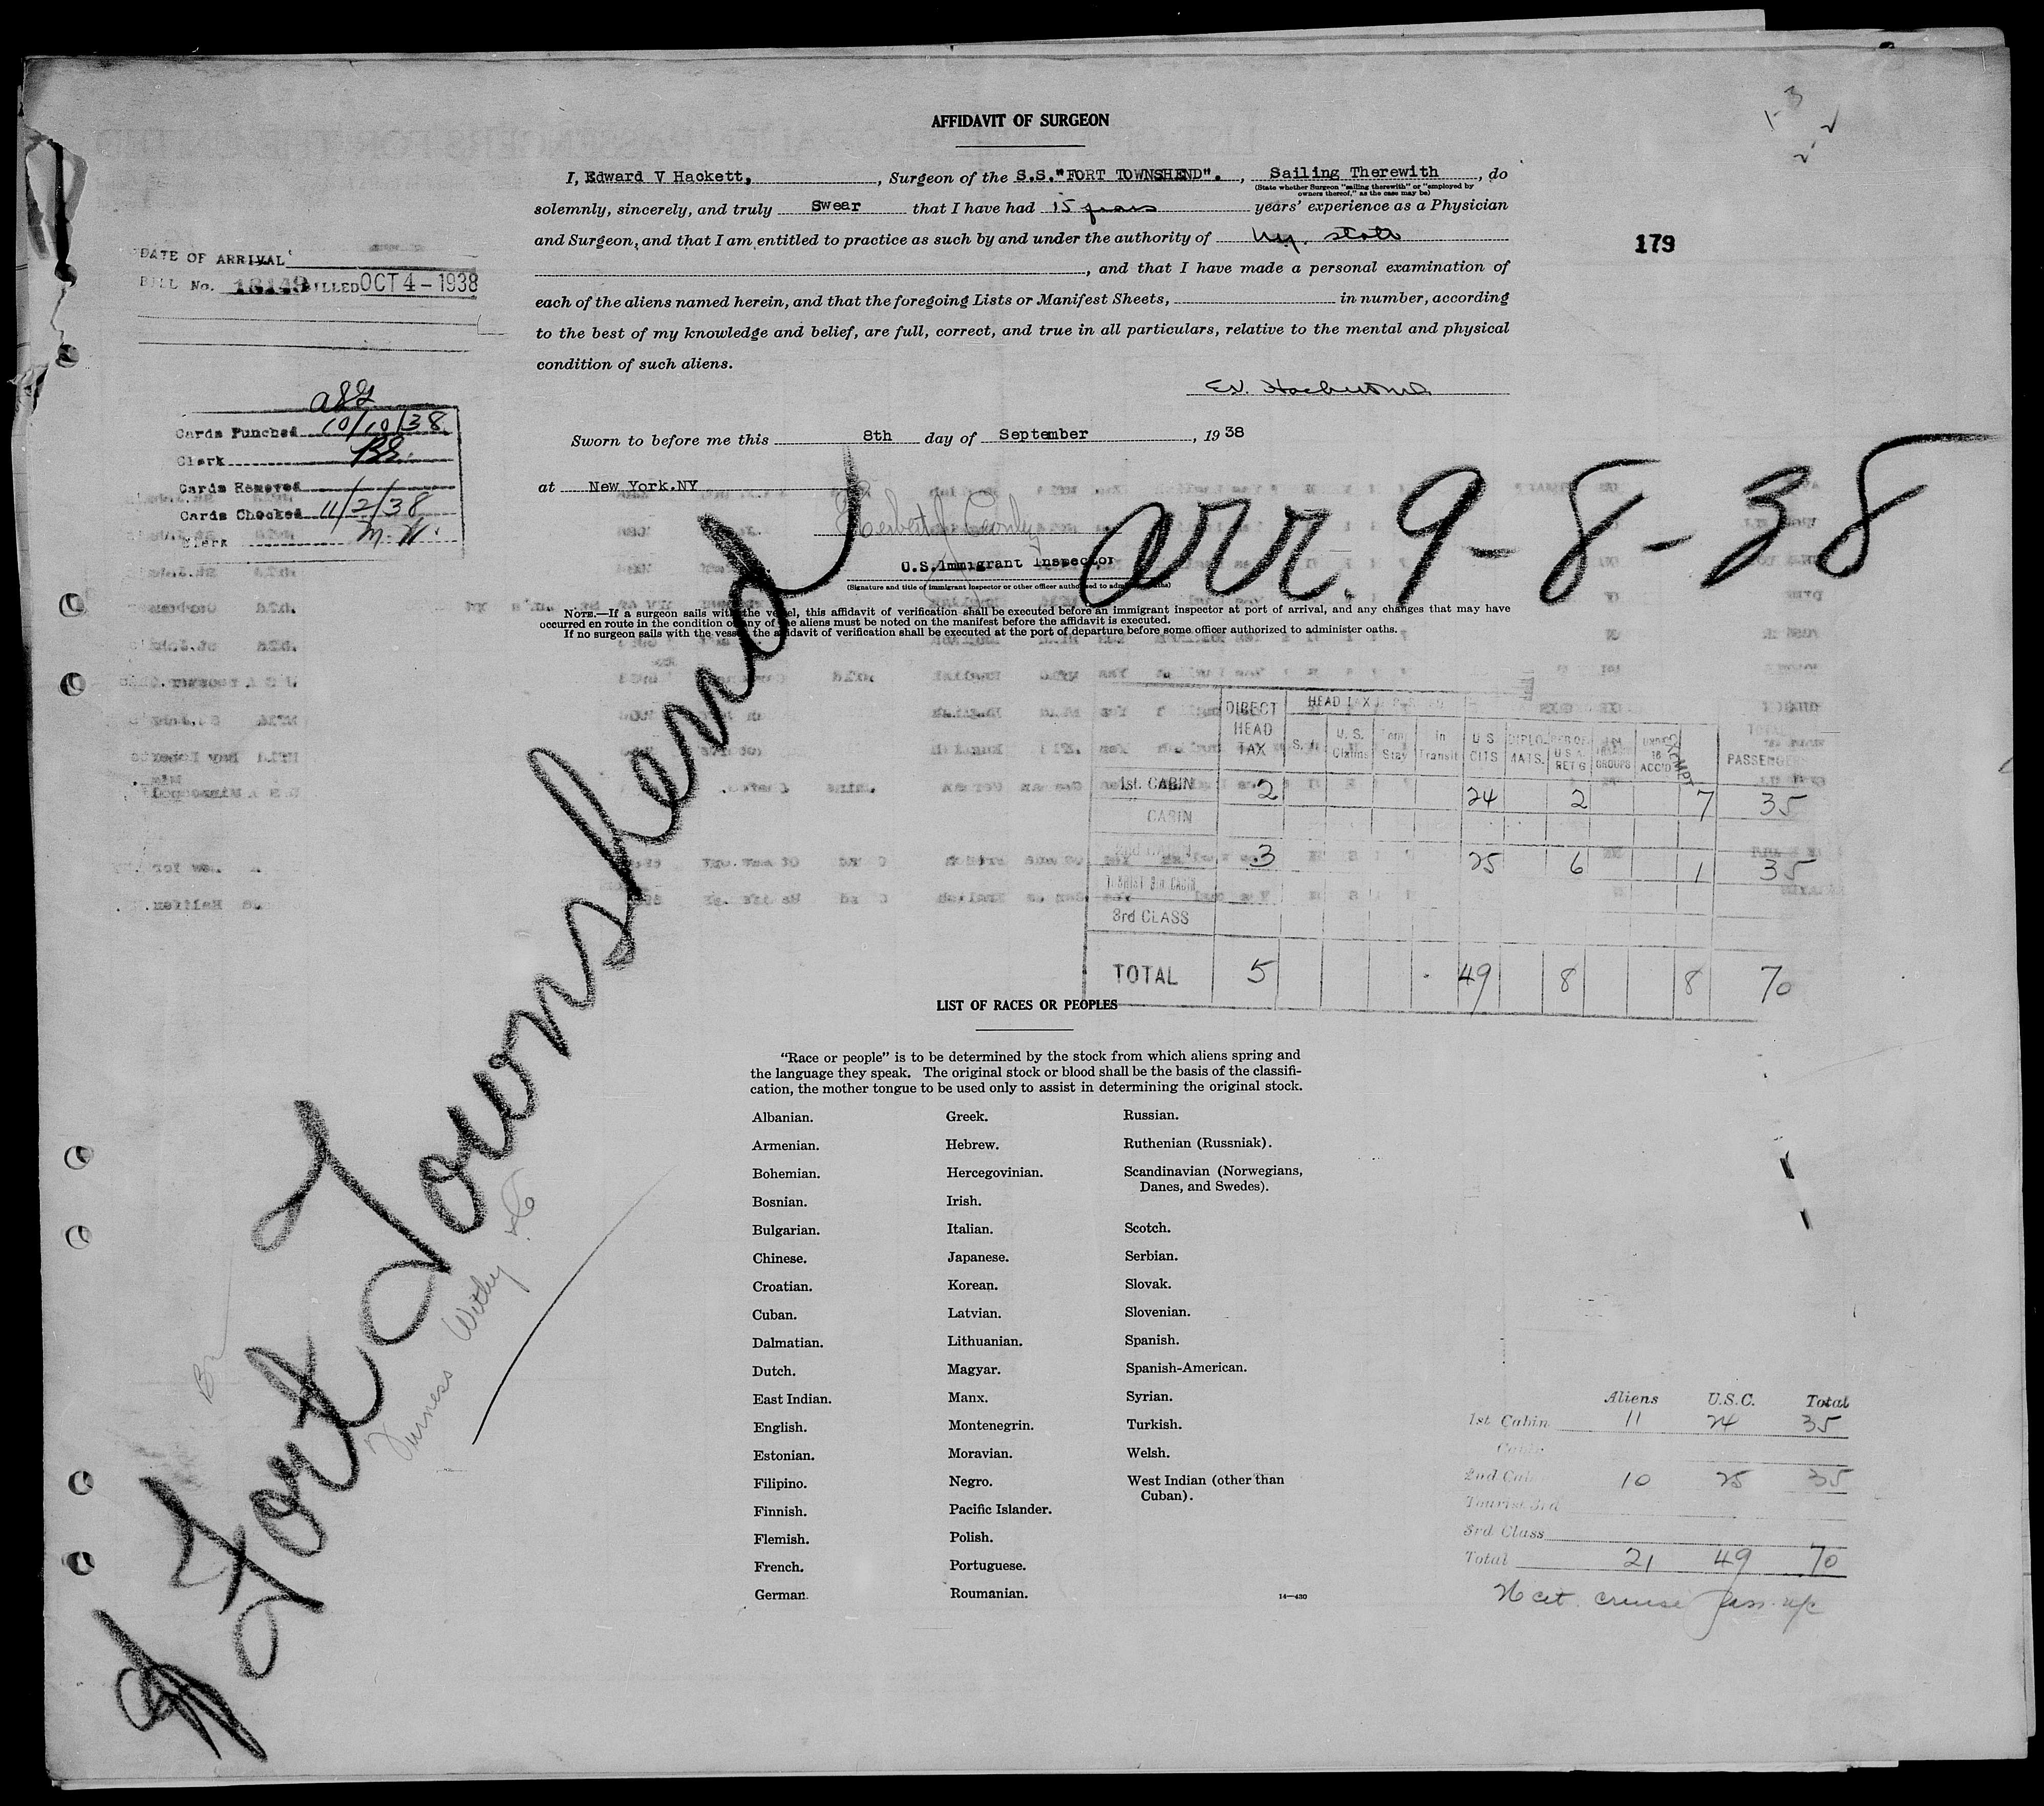 AFFIDAVIT OF SURGEON
I, Edward V Hackett, , Surgeon of the S.S."FORT TOWNSHEND". , Sailing Therewith , do
(State whether Surgeon "sailing therewith" or "employed by
owners thereof," as the case may be)
solemnly, sincerely, and truly swear that I have had 15 years years' experience as a Physician
and Surgeon, and that I am entitled to practice as such by and under the authority of N.Y. State
, and that I have made a personal examination of
each of the aliens named herein, and that the foregoing Lists or Manifest Sheets, in number, according
to the best of my knowledge and belief, are full, correct, and true in all particulars, relative to the mental and physical
condition of such aliens.
179
DATE OF ARRIVAL
BILL No. BILLED OCT 4 - 1938
Cards Punched 10/10/38
Clerk
Cards Removed
Cards Checked 11/2/38
Clerk M.H.
Sworn to before me this 8th day of September , 19 38
at New York.NY
U.S.Immigrant Inspector
(Signature and title of immigrant inspector or other officer authorized to administer oaths)
arr. 9-8-38
NOTE.—If a surgeon sails with the vessel, this affidavit of verification shall be executed before an immigrant inspector at port of arrival, and any changes that may have
occurred en route in the condition of any of the aliens must be noted on the manifest before the affidavit is executed.
If no surgeon sails with the vessel the affidavit of verification shall be executed at the port of departure before some officer authorized to administer oaths.
Fort Townshend
Furness Withy & Co
DIRECT HEAD TAX S.A. U.S. Claims Tem Stay In Transit U S CITS DIPLOMATS. RES OF U S A RET'G GROUPS UNDER 16 ACC'D EXEMPT TOTAL PASSENGERS
1st. CABIN 2 24 2 7 35
CABIN
2nd CABIN 3 25 6 1 35
TOURIST 3rd CABIN
3rd CLASS
TOTAL 5 49 8 8 70
LIST OF RACES OR PEOPLES
"Race or people" is to be determined by the stock from which aliens spring and
the language they speak. The original stock or blood shall be the basis of the classifi-
cation, the mother tongue to be used only to assist in determining the original stock.
Albanian.
Armenian.
Bohemian.
Bosnian.
Bulgarian.
Chinese.
Croatian.
Cuban.
Dalmatian.
Dutch.
East Indian.
English.
Estonian.
Filipino.
Finnish.
Flemish.
French.
German.
Greek.
Hebrew.
Hercegovinian.
Irish.
Italian.
Japanese.
Korean.
Latvian.
Lithuanian.
Magyar.
Manx.
Montenegrin.
Moravian.
Negro.
Pacific Islander.
Polish.
Portuguese.
Roumanian.
Russian.
Ruthenian (Russniak).
Scandinavian (Norwegians,
Danes, and Swedes).
Scotch.
Serbian.
Slovak.
Slovenian.
Spanish.
Spanish-American.
Syrian.
Turkish.
Welsh.
West Indian (other than
Cuban).
14—430
Aliens U.S.C. Total
1st Cabin 11 24 35
Cabin
2nd Cab. 10 25 35
Tourist 3rd
3rd Class
Total 21 49 70